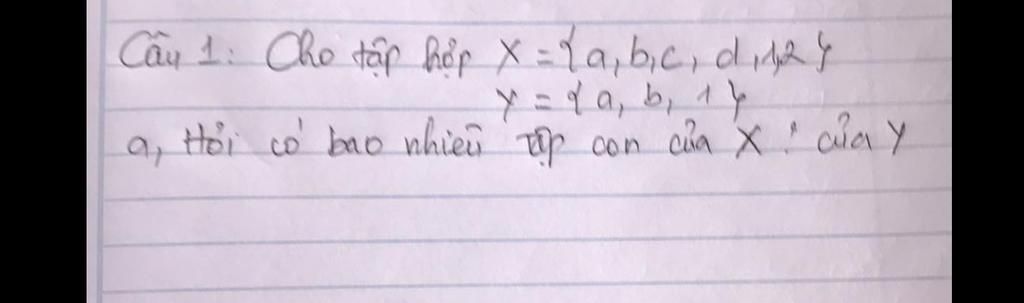 Câu 1: Cho tập hợp X = {a, b, c, d, 1, 2}
Y = {a, b, 1}
a, Hỏi có bao nhiêu tập con của X? của Y